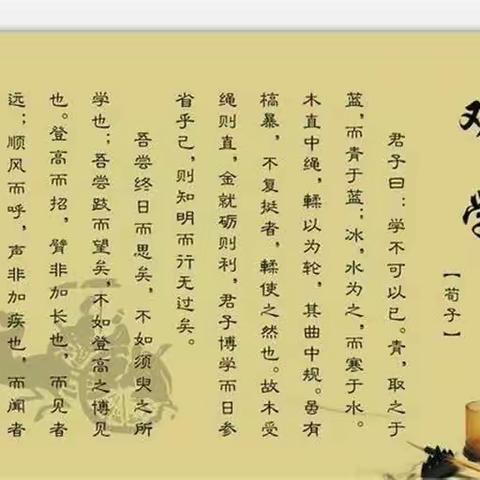 劝学
【荀子】
君子曰：学不可以已。青，取之于
蓝，而青于蓝；冰，水为之，而寒于水。
木直中绳，輮以为轮，其曲中规。虽有
槁暴，不复挺者，輮使之然也。故木受
绳则直，金就砺则利，君子博学而日参
省乎己，则知明而行无过矣。
吾尝终日而思矣，不如须臾之所
学也；吾尝跂而望矣，不如登高之博见
也。登高而招，臂非加长也，而见者
远；顺风而呼，声非加疾也，而闻者